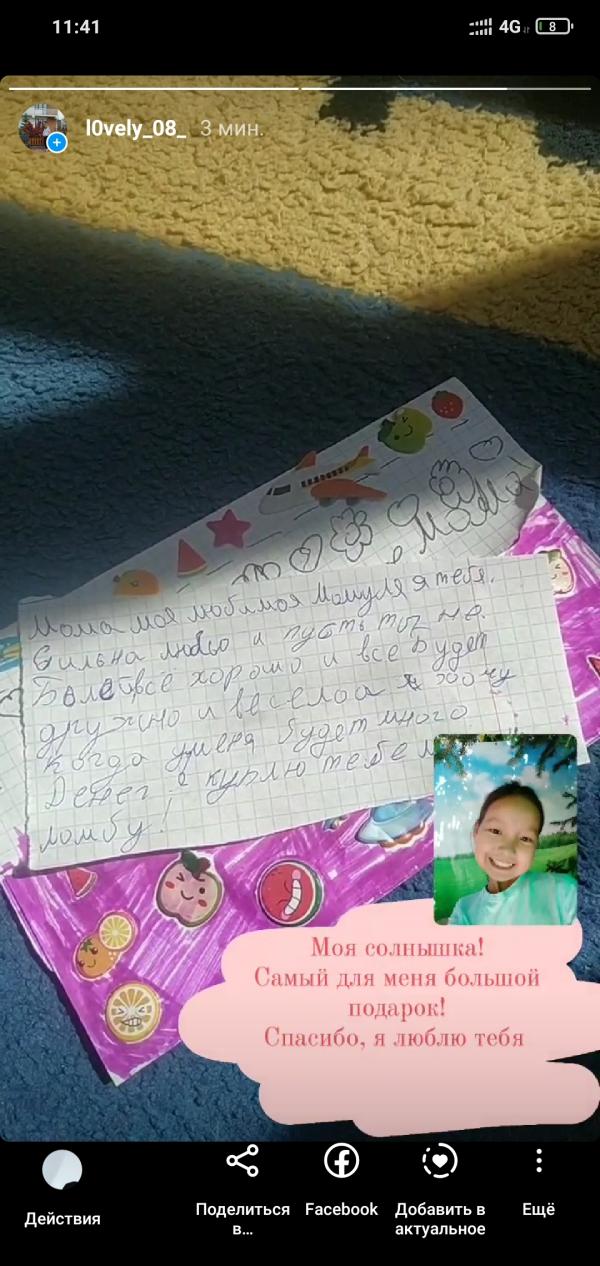 11:41
4G
8
l0vely_08_ 3 мин.
Мома
Мома моя любимоя Момуля я тебя.
Сильна люблю и пусть ты не
Болейвсё хорошо и все Будет
дружно и веселоа я хочу
когда уменя будет много
Денег я куплю тебе
ломбу!
Моя солнышка!
Самый для меня большой
подарок!
Спасибо, я люблю тебя
Действия
Поделиться
в...
Facebook
Добавить в
актуальное
Ещё